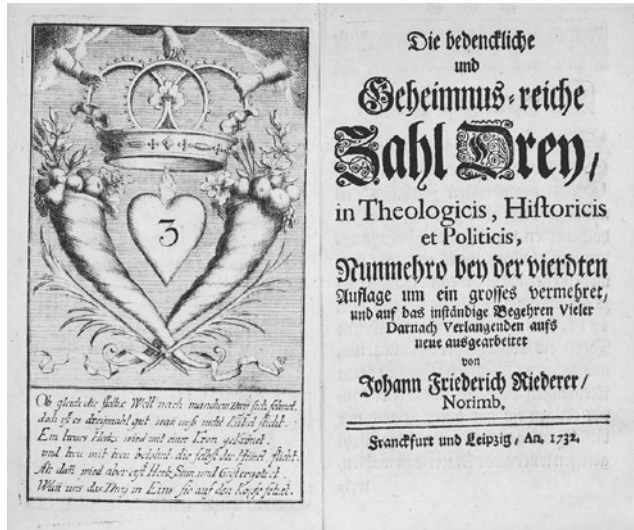 3
Ob gleich die Welt nach manchem sich sehnet
doch ist es dreymahl gut wan uns nicht
Ein treues Hertz wird mit einer Cron gekrönet
und treu mit treu belohnt die selbst der Himel
Als dañ wird aber erst Hertz, Sinn und Geist
Wañ uns das Drey in Eins sie auf den Kopffe setzet.
Die bedenckliche
und
Geheimnus-reiche
Zahl Drey/
in Theologicis, Historicis
et Politicis,
Nunmehro bey der vierdten
Auflage um ein grosses vermehret,
und auf das inständige Begehren Vieler
Darnach Verlangenden aufs
neue ausgearbeitet
von
Johann Friederich Riederer/
Norimb.
Franckfurt und Leipzig, An. 1732.